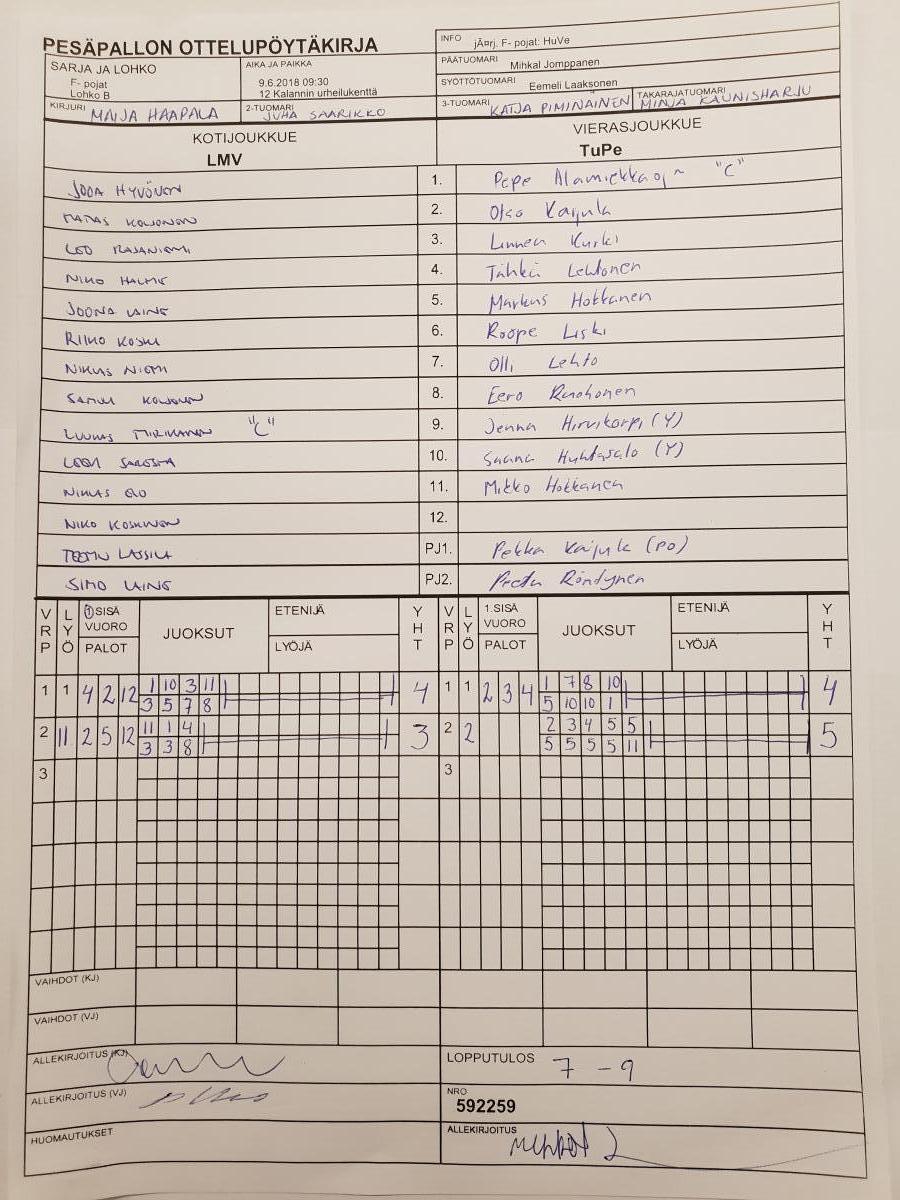 PESÄPALLON OTTELUPÖYTÄKIRJA
INFO jÃ¤rj. F- pojat: HuVe
SARJA JA LOHKO
F- pojat
Lohko B
AIKA JA PAIKKA
9.6.2018 09:30
12 Kalannin urheilukenttä
PÄÄTUOMARI Mihkal Jomppanen
SYÖTTÖTUOMARI Eemeli Laaksonen
KIRJURI MAIJA HAAPALA
2-TUOMARI JUHA SAARIKKO
3-TUOMARI KATJA PIMINÄINEN
TAKARAJATUOMARI MINJA KAUNISHARJU
KOTIJOUKKUE
LMV
VIERASJOUKKUE
TuPe
JODA HYVÖNEN 1. Pepe "C"
KOLJONEN 2. Otso Kaijula
LEO RAJANIEMI 3. Linnea Kurki
NIKO HALME 4. Tähkä Lehtonen
JOONA LAINE 5. Markus Hokkanen
KOSKI 6. Roope Liski
NIKLAS NIEMI 7. Olli Lehto
SAMUL KOLJONEN 8. Eero Ruohonen
LUUKAS "C" 9. Jenna Hirvikorpi (Y)
10. Saana Huhtasalo (Y)
NIKLAS 11. Mikko Hokkanen
NIKO KOSKINEN 12.
TEEMU LASSILA PJ1. Pekka Kaijula (PO)
SIMO LAINE PJ2. Röndynen
VRP LYÖ 1.SISÄ VUORO PALOT JUOKSUT ETENIJÄ LYÖJÄ YHT VRP LYÖ 1.SISÄ VUORO PALOT JUOKSUT ETENIJÄ LYÖJÄ YHT
1 1 4 2 12 1 10 3 11 4 1 1 2 3 4 1 7 8 10 4
3 5 7 8 5 10 10 1
2 11 2 5 12 11 1 4 3 2 2 2 3 4 5 5 5
3 3 8 5 5 5 5 11
3 3
VAIHDOT (KJ)
VAIHDOT (VJ)
ALLEKIRJOITUS (KJ)
LOPPUTULOS 7 - 9
ALLEKIRJOITUS (VJ)
NRO
592259
HUOMAUTUKSET
ALLEKIRJOITUS